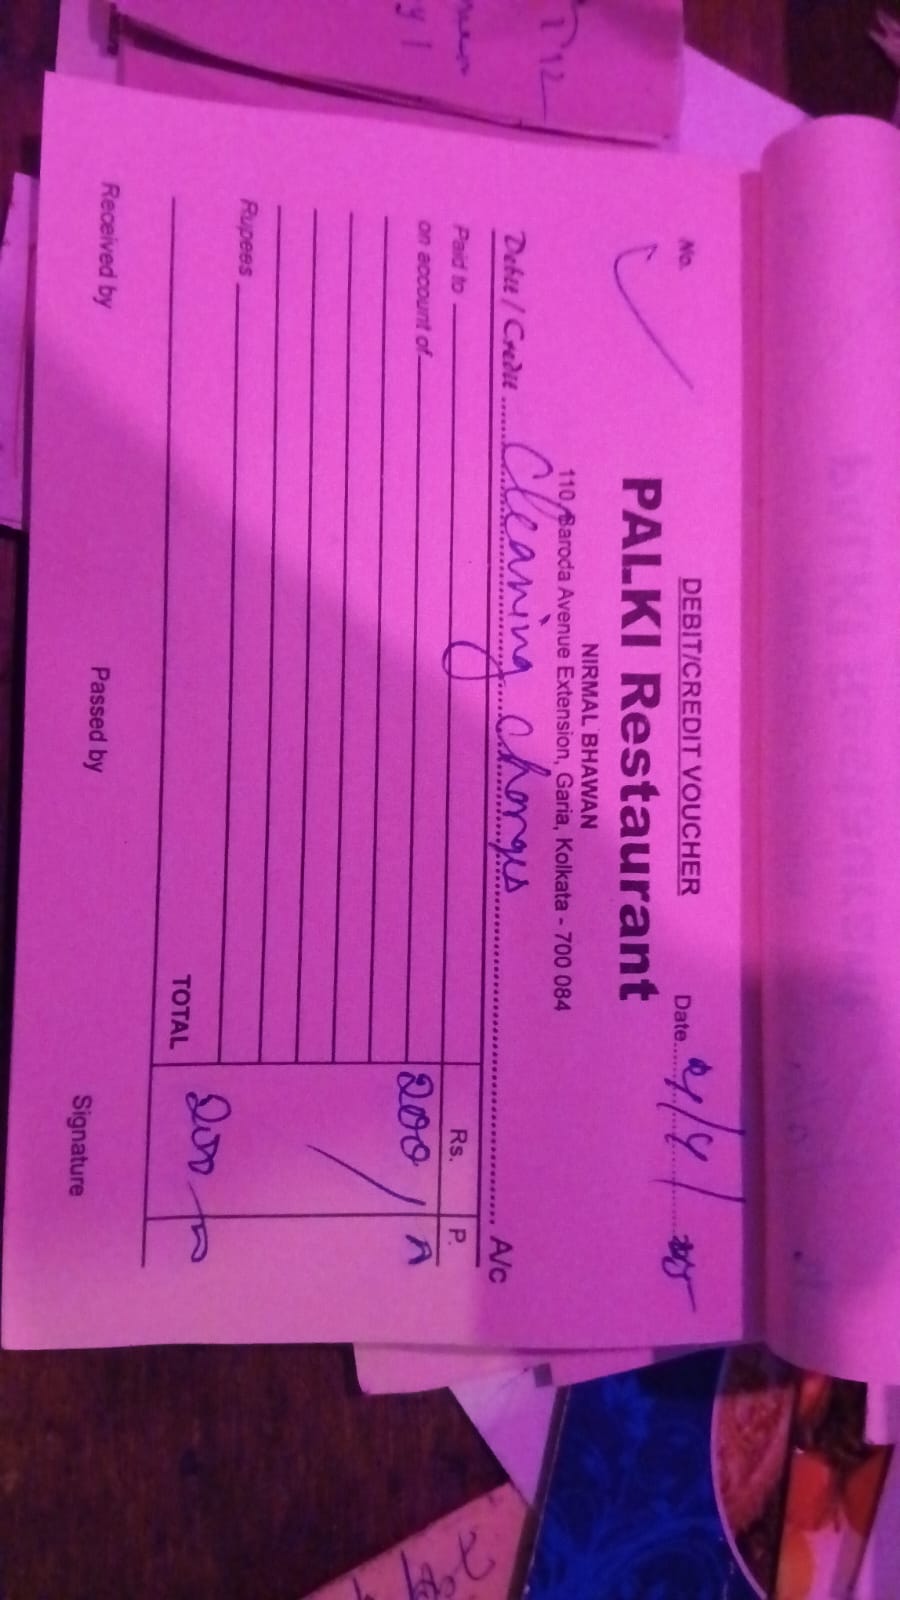 DEBIT/CREDIT VOUCHER
No.
Date
PALKI Restaurant
NIRMAL BHAWAN
110, Baroda Avenue Extension, Garia, Kolkata - 700 084
Debit / Credit Cleaning Charges A/c
Paid to Rs. P.
on account of 200/
Rupees
TOTAL
Received by Passed by Signature